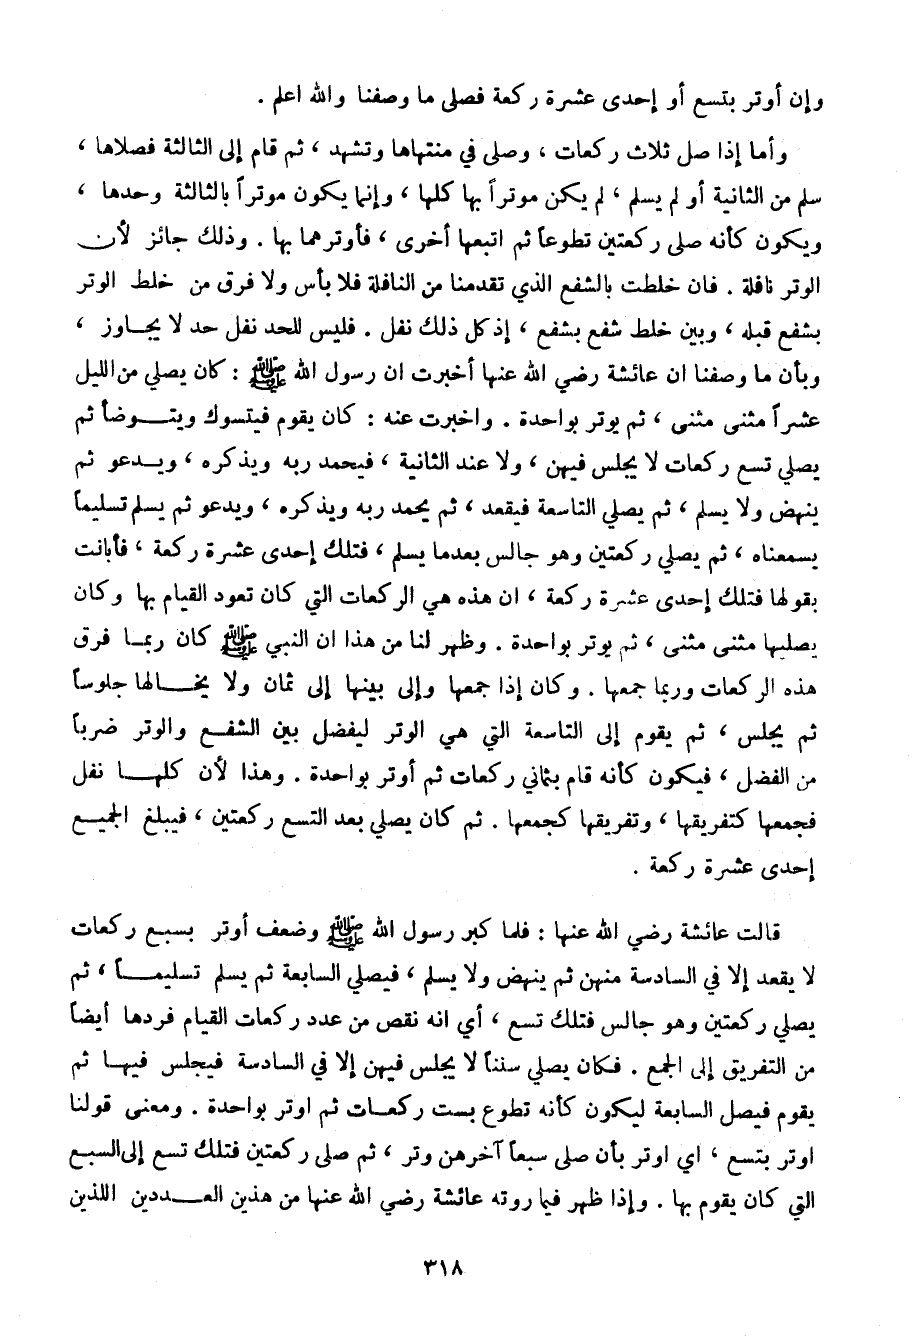 وإن أوتر بتسع أو إحدى عشرة ركعة فصلى ما وصفنا والله اعلم .
وأما إذا صل ثلاث ركعات ، وصلى في منتهاها وتشهد ، ثم قام إلى الثالثة فصلاها ،
سلم من الثانية أو لم يسلم ، لم يكن موتراً بها كلها ، وإنما يكون موتراً بالثالثة وحدها ،
ويكون كأنه صلى ركعتين تطوعاً ثم اتبعها أخرى ، فأوترهما بها . وذلك جائز لأن
الوتر نافلة . فان خلطت بالشفع الذي تقدمنا من النافلة فلا بأس ولا فرق من خلط الوتر
بشفع قبله ، وبين خلط شفع بشفع ، إذ كل ذلك نفل . فليس للحد نفل حد لا يجاوز ،
وبأن ما وصفنا ان عائشة رضي الله عنها أخبرت ان رسول الله ﷺ : كان يصلي من الليل
عشراً مثنى مثنى ، ثم يوتر بواحدة . واخبرت عنه : كان يقوم فيتسوك ويتوضأ ثم
يصلي تسع ركعات لا يجلس فيهن ، ولا عند الثانية ، فيحمد ربه ويذكره ، ويدعو ثم
ينهض ولا يسلم ، ثم يصلي التاسعة فيقعد ، ثم يحمد ربه ويذكره ، ويدعو ثم يسلم تسليماً
يسمعناه ، ثم يصلي ركعتين وهو جالس بعدما يسلم ، فتلك إحدى عشرة ركعة ، فأبانت
بقولها فتلك إحدى عشرة ركعة ، ان هذه هي الركعات التي كان تعود القيام بها وكان
يصليها مثنى مثنى ، ثم يوتر بواحدة . وظهر لنا من هذا ان النبي ﷺ كان ربما فرق
هذه الركعات وربما جمعها . وكان إذا جمعها وإلى بينها إلى ثمان ولا يخالها جلوساً
ثم يجلس ، ثم يقوم إلى التاسعة التي هي الوتر ليفضل بين الشفع والوتر ضرباً
من الفضل ، فيكون كأنه قام بثماني ركعات ثم أوتر بواحدة . وهذا لأن كلها نفل
فجمعها كتفريقها ، وتفريقها كجمعها . ثم كان يصلي بعد التسع ركعتين ، فيبلغ الجميع
إحدى عشرة ركعة .
قالت عائشة رضي الله عنها : فلما كبر رسول الله ﷺ وضعف أوتر بسبع ركعات
لا يقعد إلا في السادسة منهن ثم ينهض ولا يسلم ، فيصلي السابعة ثم يسلم تسليماً ، ثم
يصلي ركعتين وهو جالس فتلك تسع ، أي انه نقص من عدد ركعات القيام فردها أيضاً
من التفريق إلى الجمع . فكان يصلي سنناً لا يجلس فيهن إلا في السادسة فيجلس فيها ثم
يقوم فيصل السابعة ليكون كأنه تطوع بست ركعات ثم اوتر بواحدة . ومعنى قولنا
اوتر بتسع ، اي اوتر بأن صلى سبعاً آخرهن وتر ، ثم صلى ركعتين فتلك تسع إلى السبع
التي كان يقوم بها . وإذا ظهر فيما روته عائشة رضي الله عنها من هذين العددين اللذين
٣١٨